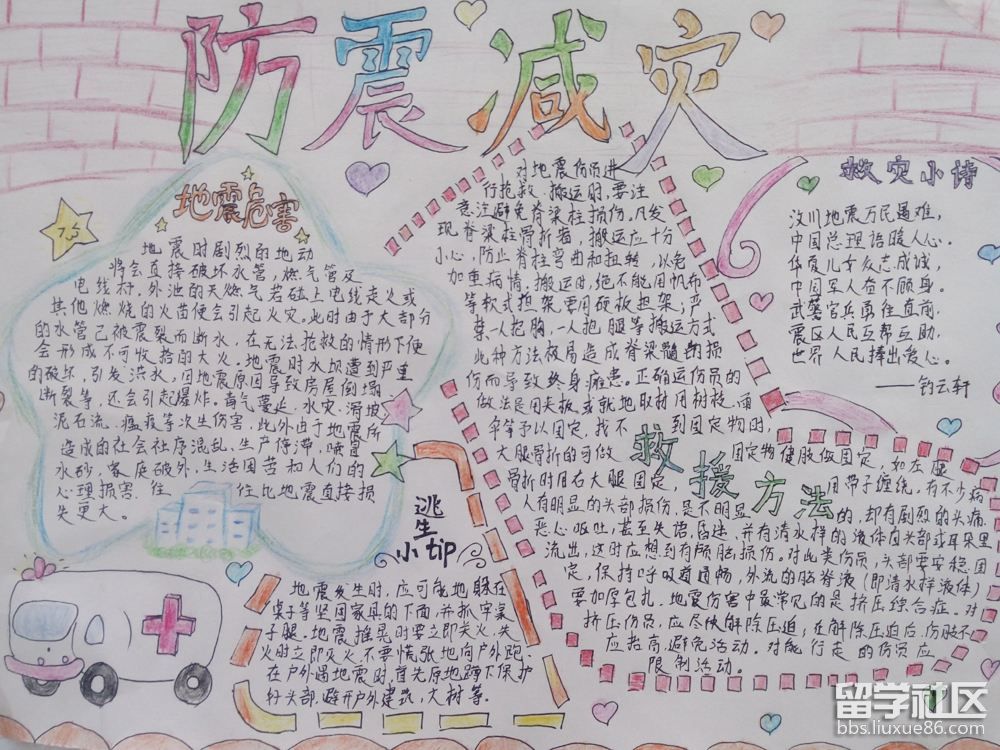 防震减灾
地震危害
7.5
地震时剧烈的地动
将会直接破坏水管,燃气管及
电线杆,外泄的天燃气若碰上电线走火或
其他燃烧的火苗便会引起火灾。此时由于大部分
的水管已被震裂而断水,在无法抢救的情形下便
会形成不可收拾的大火。地震时水坝遭到严重
的破坏,引发洪水,因地震原因导致房屋倒塌
断裂等,还会引起爆炸。毒气蔓延.水灾.滑坡
泥石流.瘟疫等次生伤害,此外由于地震所
造成的社会社序混乱、生产停滞,
家庭破外,生活困苦和人们的
心理损害.往往比地震直接损
失更大。
逃生
小tip
地震发生时,应可能地躲在
桌子等坚固家具的下面,并抓牢桌
子腿。地震摇晃时要立即关火,失
火时立即灭火,不要慌张地向户外跑.
在户外遇地震时,首先原地蹲下保护
好头部.避开户外建筑,大树等.
对地震伤员进
行抢救.搬运时,要注
意注避免脊梁柱损伤,凡发
现脊梁柱骨折者,搬运应十分
小心,防止脊柱弯曲和扭转,以免
加重病情.搬运时,绝不能用帆布
等软式担架要用硬板担架;严
禁一人抱胸,一人抱腿等搬运方式
此种方法极易造成脊梁髓损
伤而导致终身瘫患。正确运伤员的
做法是用夹板或就地取材用树枝,雨
伞等予以固定,找不到固定物时,
救援方法
大腿骨折的可做固定物健肢做固定,如左腿
骨折时用右大腿固定,用带子缠绕,有不少病
人有明显的头部损伤,是不明显的,却有剧烈的头痛,
恶心呕吐,甚至失语,昏迷,并有清水样的液体由头部或耳朵里
流出,这时应想到有颅脑损伤。对此类伤员,头部要牢稳固
定,保持呼吸道通畅,外流的脑脊液(即清水样液体)
要加厚包扎.地震伤害中最常见的是挤压综合症。对
挤压伤员,应尽快解除压迫,在解除压迫后,伤肢不
应抬高,避免活动.对能行走的伤员应
限制活动。
救灾小诗
汶川地震万民遇难,
中国总理语暖人心。
华夏儿女众志成诚,
中国军人奋不顾身。
武警官兵勇往直前,
震区人民互帮互助,
世界人民捧出爱心。
——钧云轩
留学社区
bbs.liuxue86.com